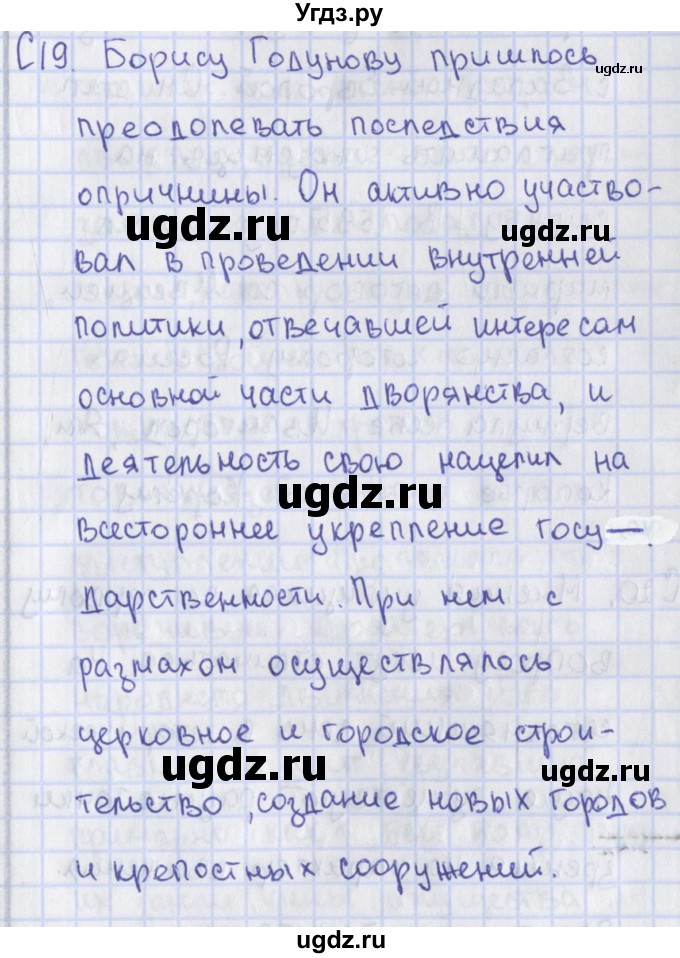 Угдз.ру
С19. Борису Годунову пришлось
ugdz.ru
преодолевать последствия
опричнины. Он активно участво-
ugdz.ru
ugdz.ru
вал в проведении внутренней
политики, отвечавшей интересам
основной части дворянства, и
деятельность свою нацелил на
ugdz.ru
всестороннее укрепление госу-
ugdz.ru
дарственности. При нем с
размахом осуществлялось
церковное и городское строи-
ugdz.ru
ugdz.ru
тельство, создание новых городов
и крепостных сооружений.
ugdz.ru